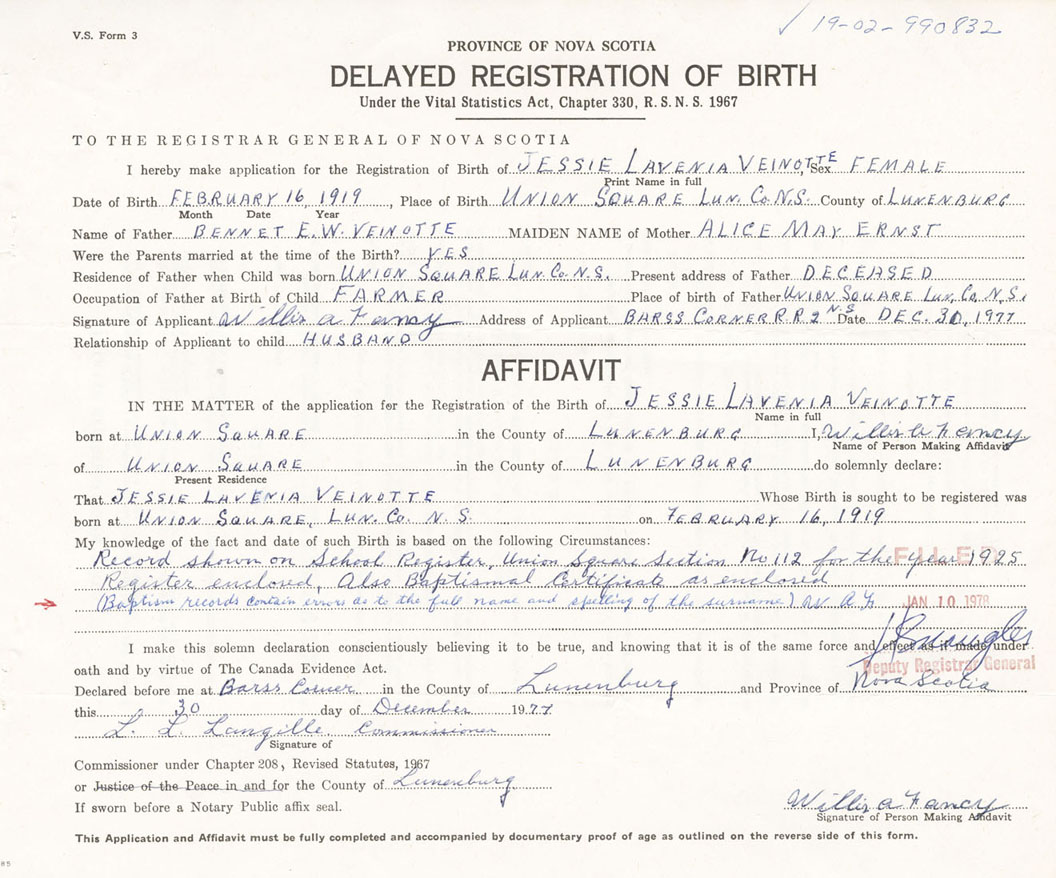 V.S. Form 3
✓ 19-02-990832
PROVINCE OF NOVA SCOTIA
DELAYED REGISTRATION OF BIRTH
Under the Vital Statistics Act, Chapter 330, R.S.N.S. 1967
TO THE REGISTRAR GENERAL OF NOVA SCOTIA
I hereby make application for the Registration of Birth of JESSIE LAVENIA VEINOTTE, Sex FEMALE
Print Name in full
Date of Birth FEBRUARY 16, 1919, Place of Birth UNION SQUARE LUN. CO. N.S. County of LUNENBURG
Month Date Year
Name of Father BENNET E.W. VEINOTTE MAIDEN NAME of Mother ALICE MAY ERNST
Were the Parents married at the time of the Birth? YES
Residence of Father when Child was born UNION SQUARE LUN. CO. N.S. Present address of Father DECEASED
Occupation of Father at Birth of Child FARMER Place of birth of Father UNION SQUARE LUN. CO. N.S.
Signature of Applicant Willis A Fancy Address of Applicant BARSS CORNER R.R 2 N.S Date DEC. 30, 1977
Relationship of Applicant to child HUSBAND
AFFIDAVIT
IN THE MATTER of the application for the Registration of the Birth of JESSIE LAVENIA VEINOTTE
Name in full
born at UNION SQUARE in the County of LUNENBURG I, Willis A Fancy
Name of Person Making Affidavit
of UNION SQUARE in the County of LUNENBURG do solemnly declare:
Present Residence
That JESSIE LAVENIA VEINOTTE Whose Birth is sought to be registered was
born at UNION SQUARE, LUN. CO. N.S. on FEBRUARY 16, 1919
My knowledge of the fact and date of such Birth is based on the following Circumstances:
Record shown on School Register, Union Square Section No 112 for the year 1925
FILED
Register enclosed, Also Baptismal Certificate as enclosed
(Baptism records contain errors as to the full name and spelling of the surname) W A F JAN 10 1978
I make this solemn declaration conscientiously believing it to be true, and knowing that it is of the same force and effect as if made under
oath and by virtue of The Canada Evidence Act.
Deputy Registrar General
Declared before me at Barss Corner in the County of Lunenburg and Province of Nova Scotia
this 30 day of December 1977
L. L. Langille Commissioner
Signature of
Commissioner under Chapter 208, Revised Statutes, 1967
or Justice of the Peace in and for the County of Lunenburg
If sworn before a Notary Public affix seal.
Willis A Fancy
Signature of Person Making Affidavit
This Application and Affidavit must be fully completed and accompanied by documentary proof of age as outlined on the reverse side of this form.